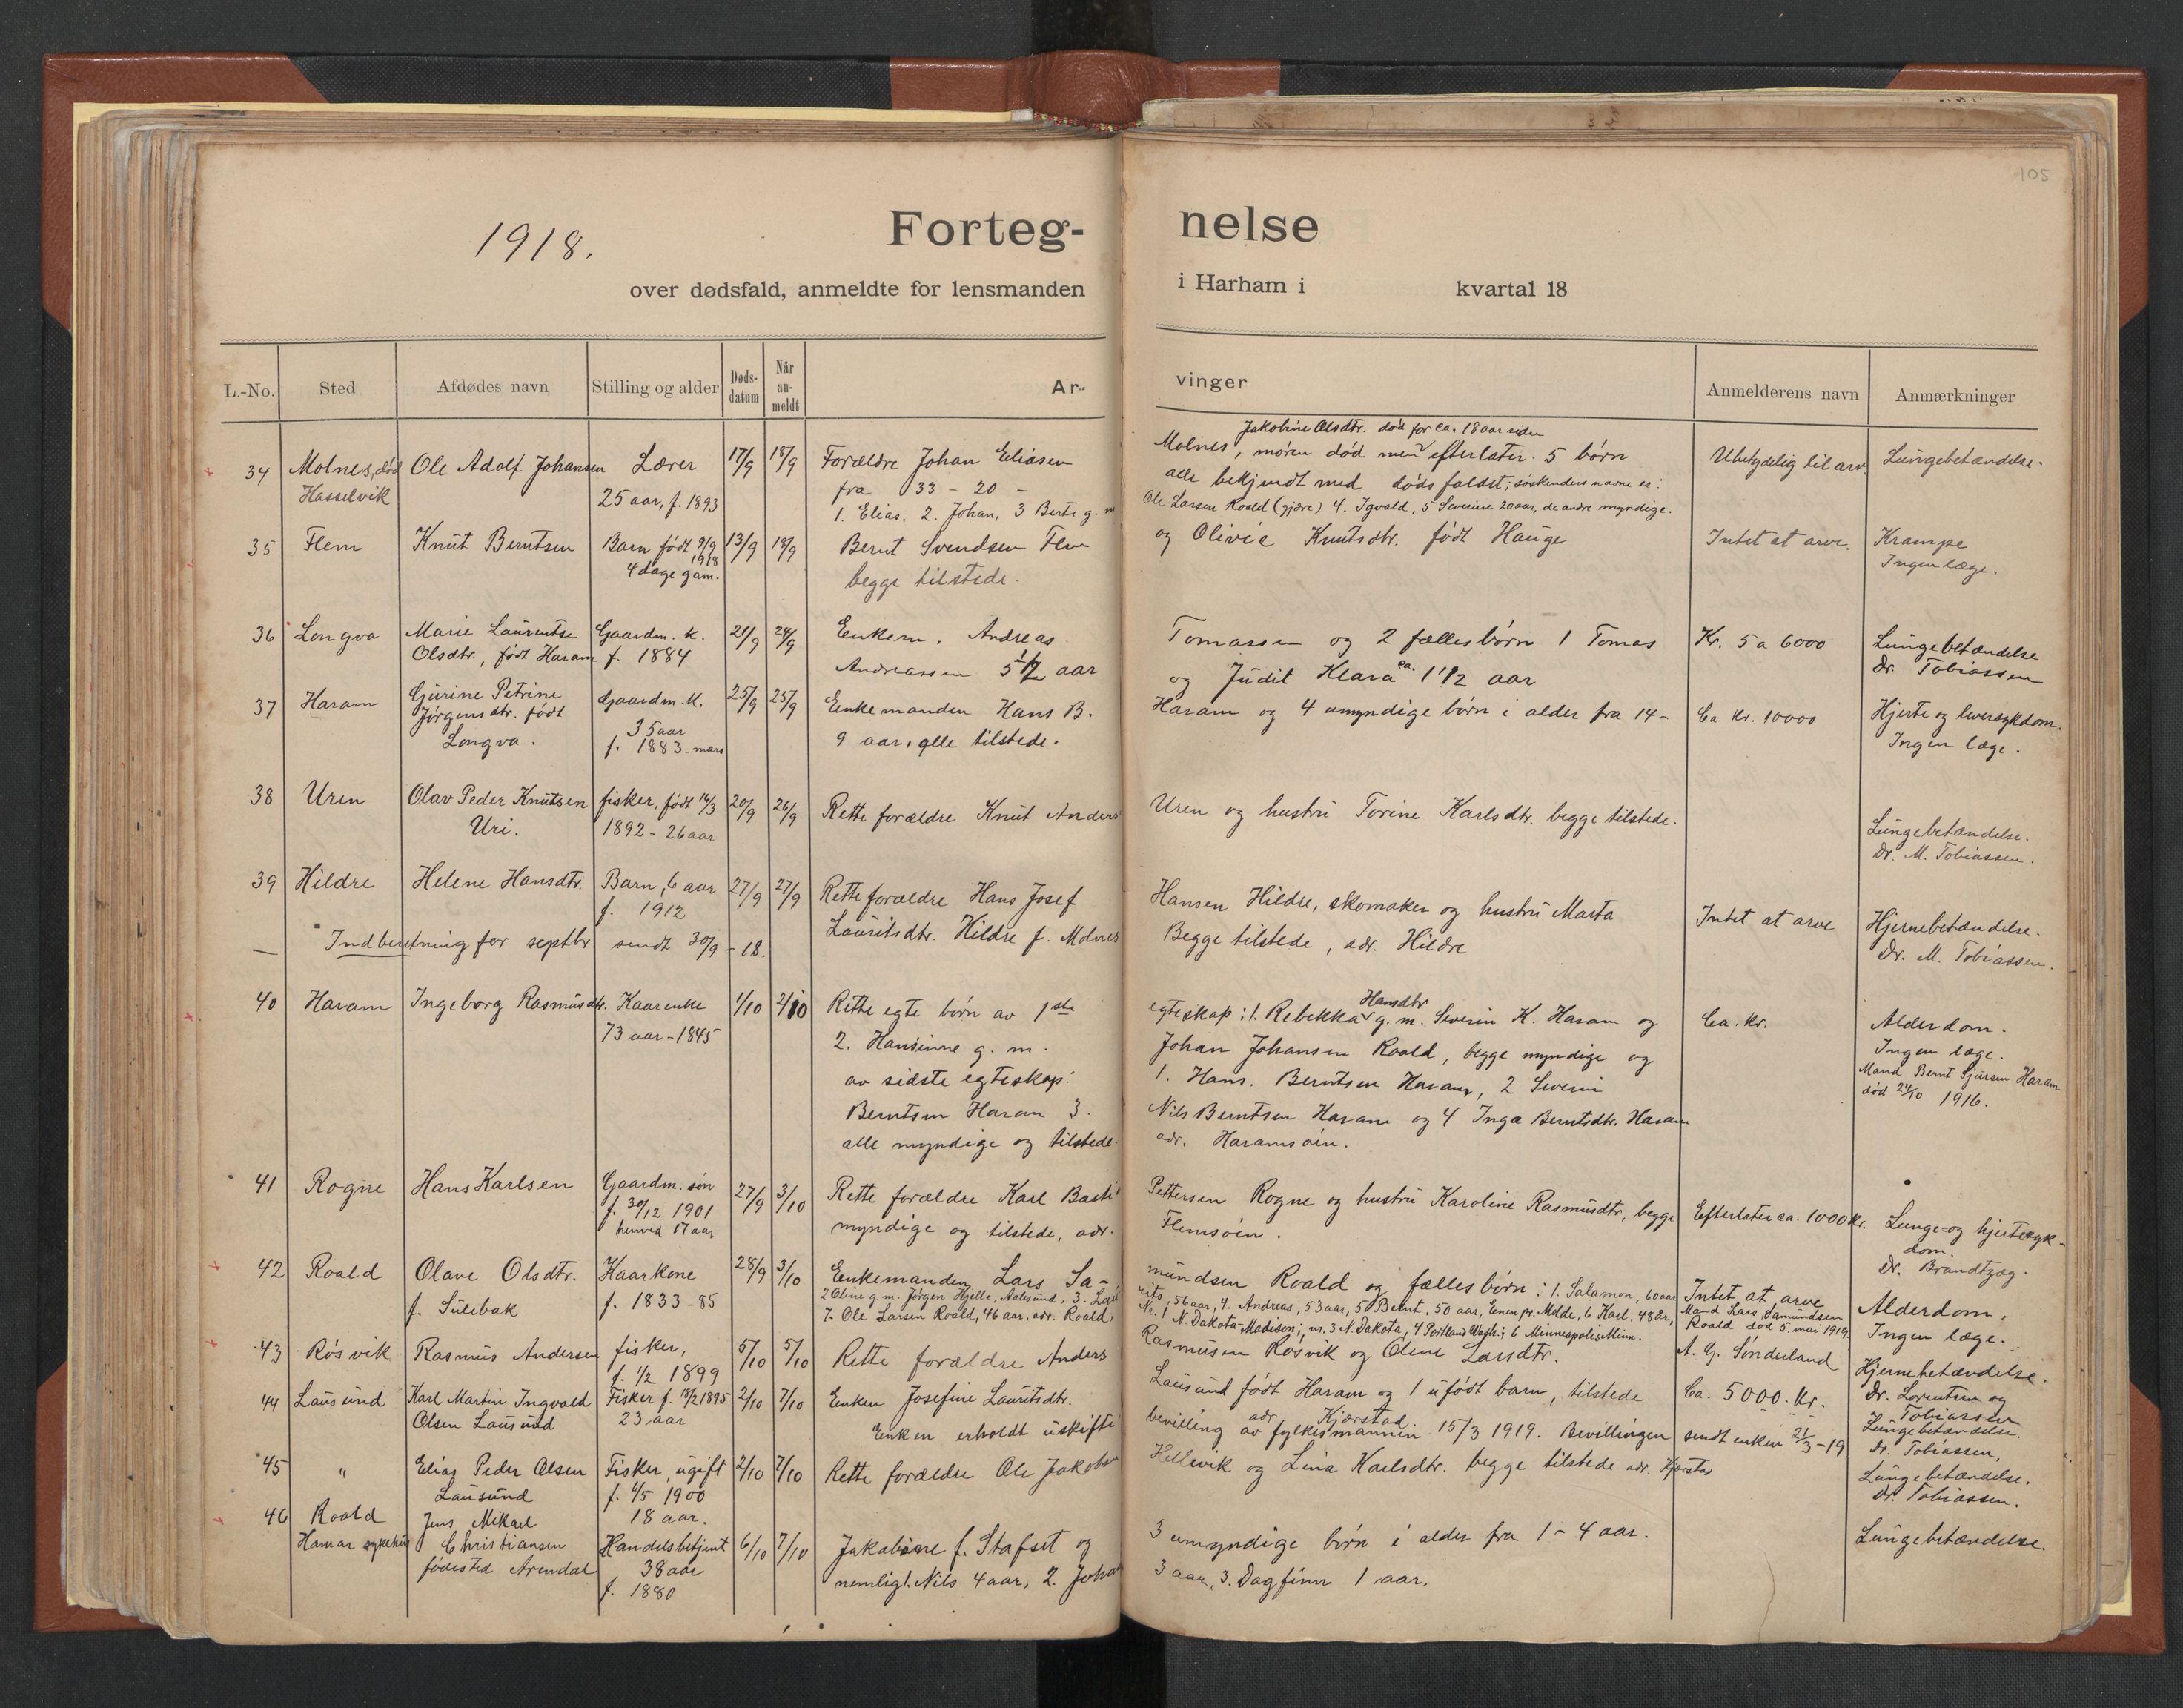 105
1918.
Forteg-nelse
over dødsfald, anmeldte for lensmanden i Harham i kvartal 18
L.-No. Sted Afdødes navn Stilling og alder Døds-datum Når an-meldt Ar-vinger Anmelderens navn Anmærkninger
Jakobine Olsdtr. død for ca. 18 aar siden
34 Molnes, død Ole Adolf Johansen Lærer 17/9 18/9 Forældre Johan Eliasen Molnes, moren død men efterlater 5 børn Ubetydelig til arv. Lungebetændelse.
Hasselvik 25 aar, f. 1893 fra 33 - 20 - alle bekjendt med dødsfaldet; søskendes navne er:
1. Elias. 2. Johan, 3 Berte g. m Ole Larsen Roald (gjære) 4. Ingvald, 5 Severine 20 aar, de andre myndige.
35 Flem Knut Berntsen Barn født 9/9 13/9 18/9 Bernt Svendsen Flem og Olivie Knutsdtr. født Hauge Intet at arve. Krampe
1918
4 dage gam. begge tilstede. Ingen læge.
36 Longva Marie Laurentse Gaardm. k. 21/9 24/9 Enkem. Andreas Tomassen og 2 fællesbørn 1 Tomas Kr. 5 a 6000 Lungebetændelse
Olsdtr., født Haram f. 1884 Andreassen 5 1/2 aar og Judit Klara ca. 1 1/2 aar Dr. Tobiassen
37 Haram Gurine Petrine Gaardm. K. 25/9 25/9 Enkemanden Hans B. Haram og 4 umyndige børn i alder fra 14- Ca Kr. 10000 Hjerte og leversykdom.
Jørgensdtr. født 35 aar
Longva. f. 1883-mars 9 aar, alle tilstede. Ingen læge.
38 Uren Olav Peder Knutsen fisker, født 14/3 20/9 26/9 Rette forældre Knut Anders Uren og hustru Torine Karlsdtr. begge tilstede.
Uri. 1892 - 26 aar Lungebetændelse.
Dr. M. Tobiassen.
39 Hildre Helene Hansdtr. Barn, 6 aar 27/9 27/9 Rette forældre Hans Josef Hansen Hildre, skomaker og hustru Marta Intet at arve Hjernebetændelse.
f. 1912 Lauritsdtr. Hildre f. Molnes Begge tilstede, adr. Hildre Dr. M. Tobiassen.
— Indberetning for septbr sendt 30/9 - 18.
40 Haram Ingeborg Rasmusdtr. Kaarenke 1/10 2/10 Rette egte børn av 1ste egteskap: 1. Rebekka Hansdtr g. m. Severin K. Haram og Ca. kr. Alderdom.
73 aar - 1845 2. Hansinne g. m. Johan Johansen Roald, begge myndige og Ingen læge.
av sidste egteskap: 1. Hans. Berntsen Haram, 2 Severin Mand Bernt Sjursen Haram
Berntsen Haram 3. Nils Berntsen Haram og 4 Inga Berntsdtr. Haram død 24/10 1916.
alle myndige og tilstede. adr. Haramsøen.
41 Rogne Hans Karlsen Gaardm. søn 27/9 3/10 Rette forældre Karl Pettersen Rogne og hustru Karoline Rasmusdtr, begge Efterlater ca. 1000 kr. Lunge- og hjertesyk-
f. 30/12 1901 myndige og tilstede, adr. Flemsøen. dom.
henved 17 aar Dr. Brandtzæg.
42 Roald Olave Olsdtr. Kaarkone 28/9 3/10 Enkemanden Lars Sa-mundsen Roald og fællesbørn: 1. Salamon, 60 aar Intet at arve Alderdom,
f. Sulebak f. 1833 - 85 2 Oline g. m. Jørgen Hjelle, Aalesund, 3. Lau rits, 56 aar, 4. Andreas, 53 aar, 5 Bernt, 50 aar, 6 Karl, 48 år, Mand Lars Samundsen Ingen læge.
7. Ole Larsen Roald, 46 aar, adr. Roald. Nr. 1 N. Dakota-Madison; nr. 3 N. Dakota, 4 Portland Wash; 6 Minneapolis Minn. Roald død 5 mai 1919
43 Røsvik Rasmus Andersen fisker, 5/10 5/10 Rette forældre Anders Rasmusen Røsvik og Oline Larsdtr. A. G. Sønderland Hjernebetændelse.
f. 1/2 1899 Dr. Lorentsen og
Tobiassen
44 Lausund Karl Martin Ingvald Fisker f. 13/2 1895 2/10 7/10 Enken Josefine Lauritsdtr. Lausund født Haram og 1 ufødt barn, tilstede Ca. 5000. Kr. Lungebetændelse.
Olsen Lausund 23 aar adr. Kjærstad. Dr. Tobiassen,
Enken erholdt uskifte bevilling av fylkesmannen 15/3 1919. Bevillingen sendt enken 21/3-19
45 " Elias Peder Olsen Fisker, ugift 2/10 7/10 Rette forældre Ole Jakobsen Hellevik og Lina Karlsdtr. begge tilstede adr. Kjærstad Lungebetændelse.
Lausund f. 4/5 1900 Dr. Tobiassen.
18 aar.
46 Roald Jens Mikael Handelsbetjent 6/10 7/10 Jakobine f. Stafset og 3 umyndige børn i alder fra 1 - 4 aar. Lungebetændelse.
Hamar sykehus Christiansen 38 aar nemligl. Nils 4 aar, 2. Johan 3 aar, 3. Dagfinn 1 aar.
fødested Arendal f. 1880